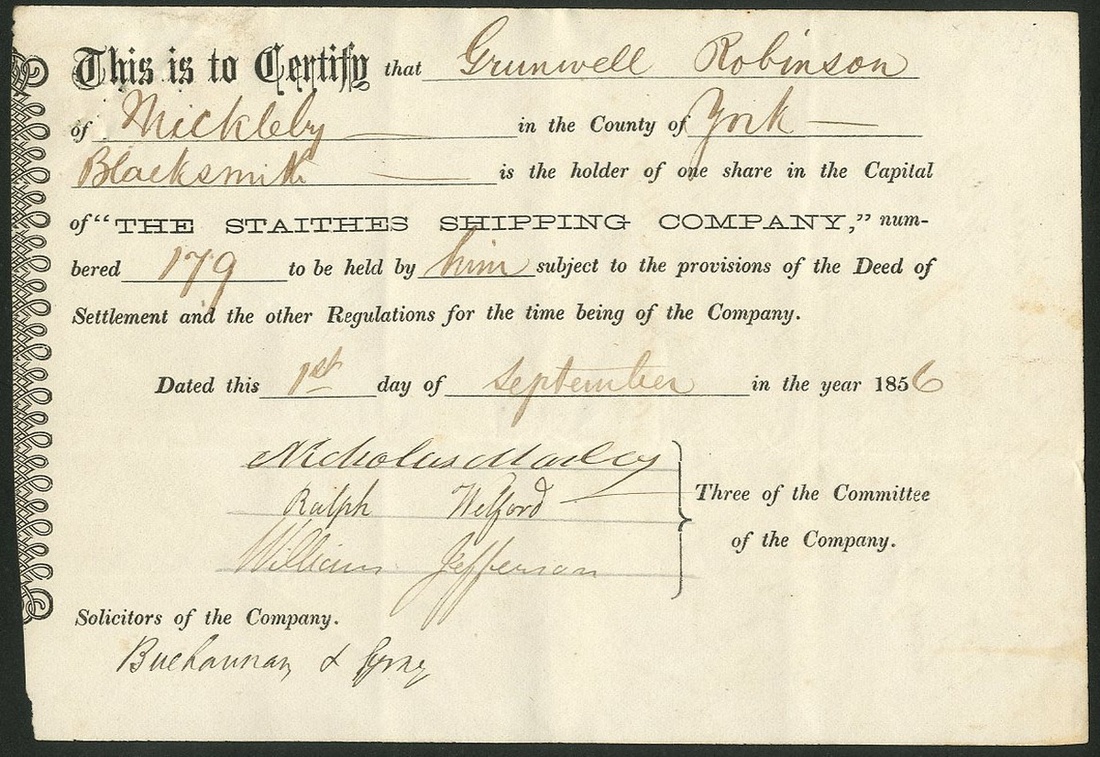 This is to Certify that Grunwell Robinson
of Mickleby in the County of York
Blacksmith is the holder of one share in the Capital
of "THE STAITHES SHIPPING COMPANY," num-
bered 179 to be held by him subject to the provisions of the Deed of
Settlement and the other Regulations for the time being of the Company.
Dated this 1st day of September in the year 1856
Nicholas
Ralph Welford
William Jefferson
Three of the Committee
of the Company.
Solicitors of the Company.
Buchannan &